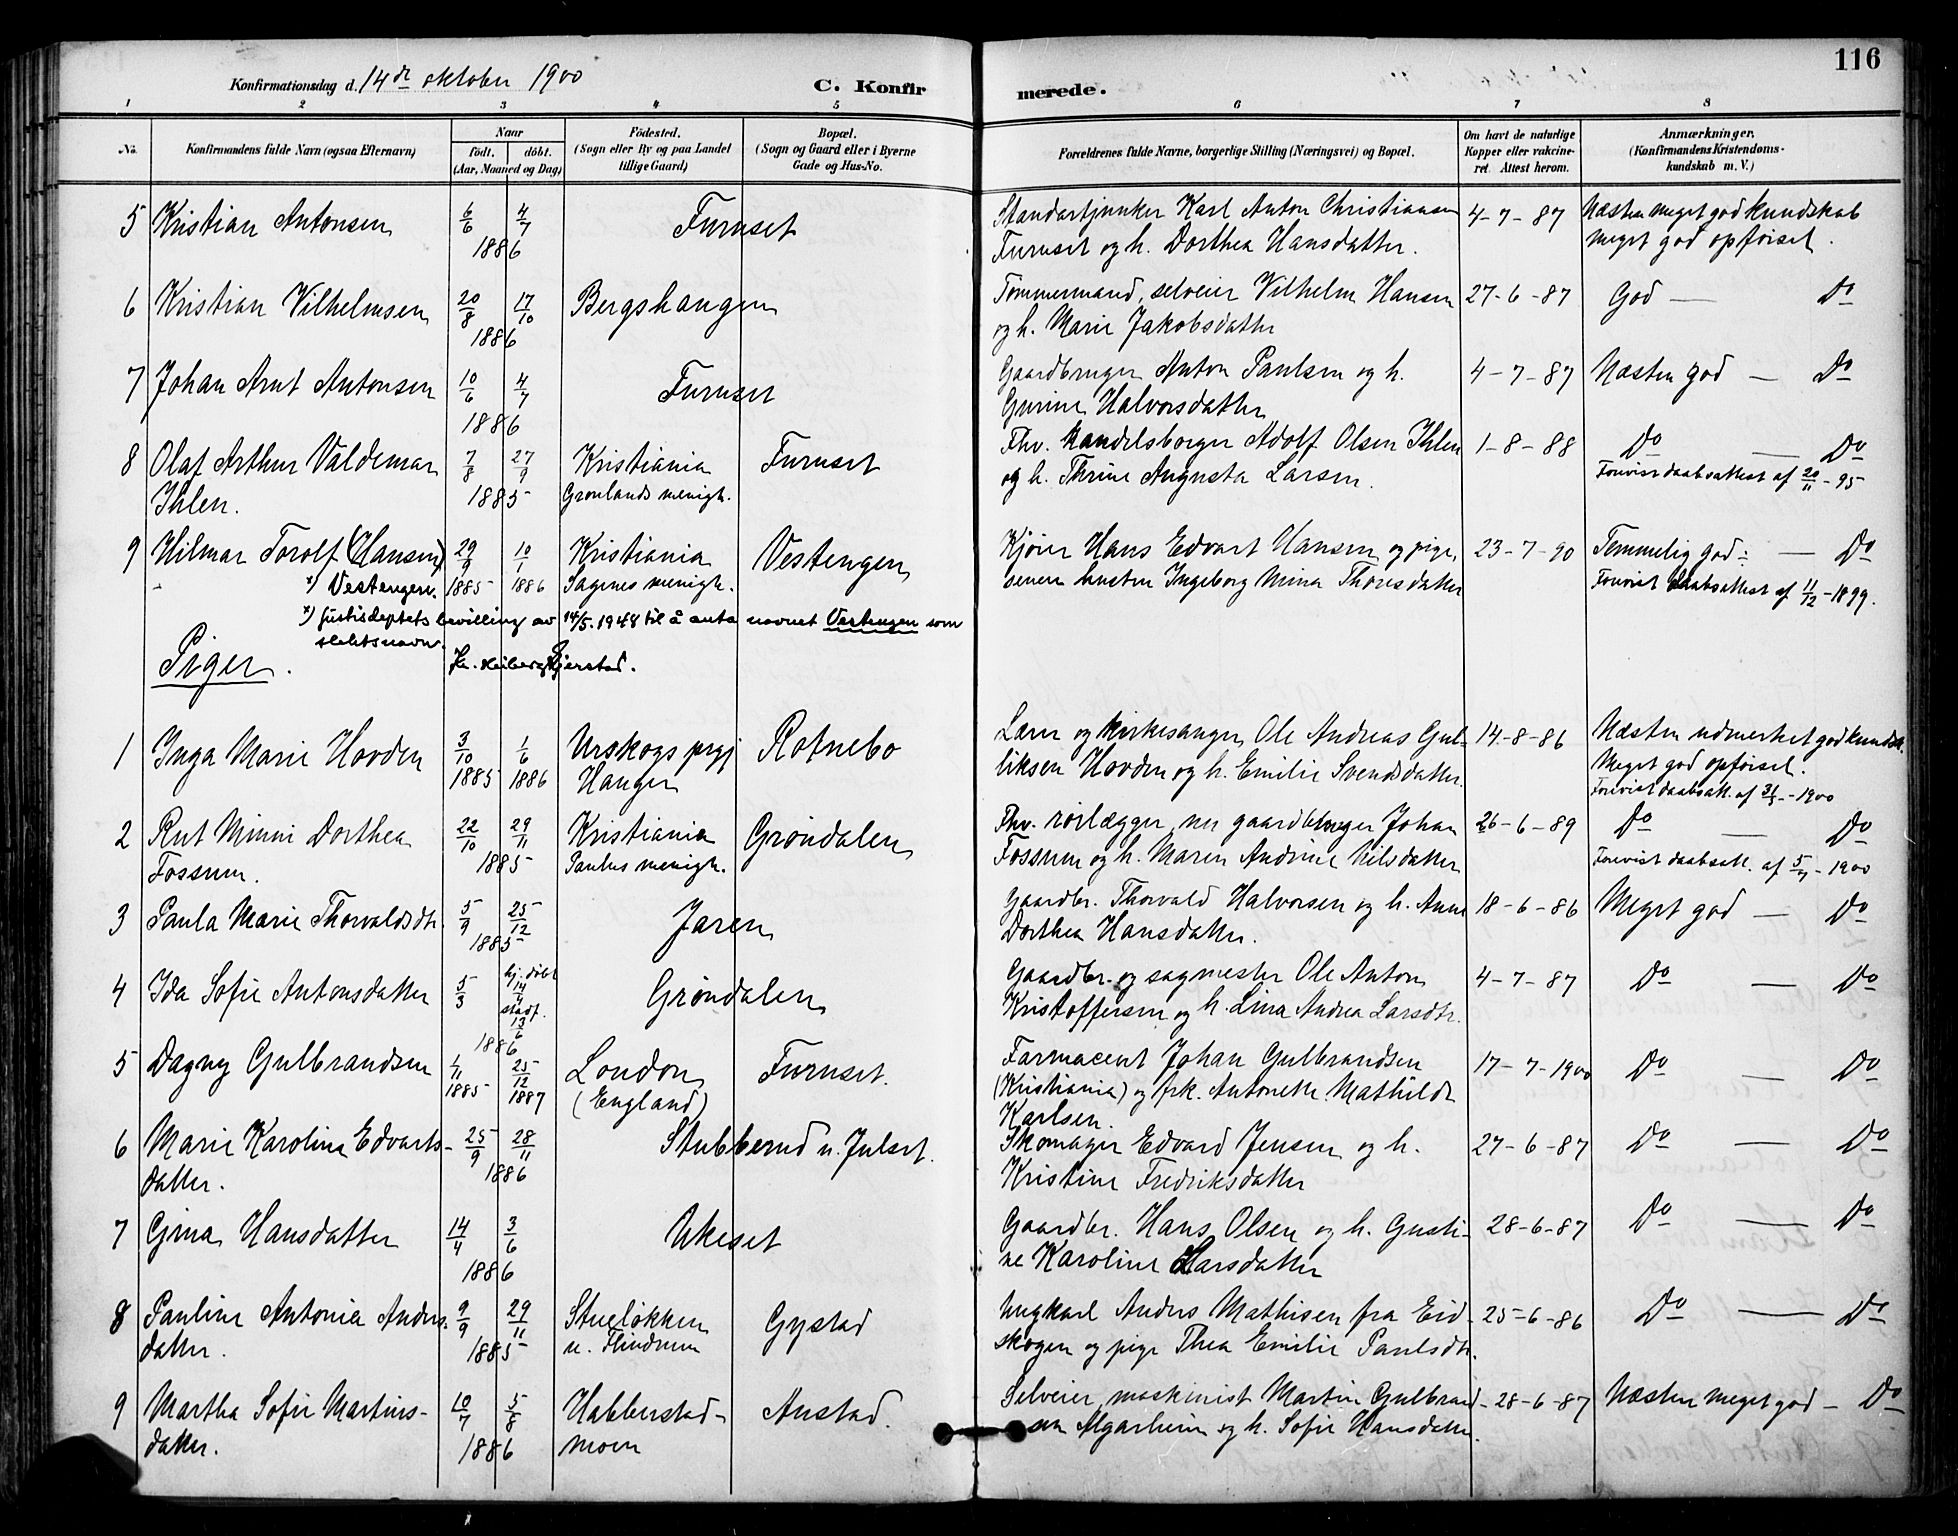 116
Konfirmationsdag d. 14de oktober 1900
C. Konfirmerede.
1 2 3 4 5 6 7 8
No.
Konfirmandens fulde Navn (ogsaa Efternavn)
Naar
födt. döbt.
(Aar, Maaned og Dag)
Födested.
(Sogn eller By og paa Landet
tillige Gaard)
Bopæl.
(Sogn og Gaard eller i Byerne
Gade og Hus-No.
Forældrenes fulde Navne, borgerlige Stilling (Næringsvei) og Bopæl.
Om havt de naturlige
Kopper eller vakcine-
ret. Attest herom.
Anmærkninger.
(Konfirmandens Kristendoms-
kundskab m. V.)
5 Kristian Antonsen 6/6 4/7 1886 Furuset
Standartjunker Karl Anton Christiansen 4-7-87 Næsten meget god kundskab
Furuset og h. Dorthea Hansdatter. meget god opførsel.
6 Kristian Vilhelmsen 20/8 17/10 1886 Bergshaugen
Tømmermand, selveier Vilhelm Hansen 27-6-87 God — Do
og h. Marie Jakobsdatter
7 Johan Arnt Antonsen 10/6 4/7 1886 Furuset
Gaardbruger Anton Paulsen og h. 4-7-87 Næsten god — Do
Gurine Halvorsdatter
8 Olaf Arthur Valdemar 7/8 27/9 Kristiania Furuset
Ihlen. 1885 Grønlands menigh.
Fhv. handelsborger Adolf Olsen Ihlen 1-8-88 Do — Do
og h. Thrine Augusta Larsen. Forevist daabsattest af 20/11-95
9 Hilmar Torolf (Hansen) 29/9 10/1 Kristiania Vestengen
x) Vestengen. 1885 1886 Sagenes menigh.
Kjører Hans Edvart Hansen og pige, 23-7-90 Temmelig god — Do
senere hustru Ingeborg Mina Thoresdatter Forevist daabsattest af 11/12-1899.
x) Justisdeptets bevilling av 14/5.1948 til å anta navnet Vestengen som
slektsnavn.
Piger.
1 Inga Marie Hovden 3/10 1/6 Urskogs prgj. Rotnebo
1885 1886 Hanger
Lærer og kirkesanger Ole Andreas Gul- 14-8-86 Næsten udmerket god kundsk.
liksen Hovden og h. Emilie Svendsdatter. Meget god opførsel.
Forevist daabsatt. af - 1900
2 Rut Minni Dorthea 22/10 29/11 Kristiania Grøndalen
Fossum. 1885 Paulus menigh.
Fhv. rørlægger, nu gaardbruger Johan 26-6-89 Do — Do
Fossum og h. Maren Andrine Nilsdatter Forevist daabsatt. af - 1900
3 Paula Marie Thorvaldsdtr. 5/9 25/12 1885 Jaren
Gaardbr. Thorvald Halvorsen og h. Anne 18-6-86 Meget god — Do
Dorthea Hansdatter.
4 Ida Sofie Antonsdatter 5/3 hj. døbt 14/4 stadf. 13/6 1886 Grøndalen
Gaardbr. og sagmester Ole Anton 4-7-87 Do — Do
Kristoffersen og h. Lina Andrea Larsdtr.
5 Dagny Gulbrandsen 1/11 1885 25/12 1887 London Furuset.
(England)
Farmaceut Johan Gulbrandsen 17-7-1900 Do — Do
(Kristiania) og frk. Antonette Mathilde
Karlsen.
6 Marie Karoline Edvarts- 25/9 28/11 Stubberud u. Julset.
datter. 1886
Skomager Edvard Jensen og h. 27-6-87 Do — Do
Kristine Fredriksdatter
7 Gina Hansdatter 14/4 3/6 1886 Ukeset
Gaardbr. Hans Olsen og h. Gusti- 28-6-87 Do — Do
ne Karoline Larsdatter
8 Pauline Antonia Anders- 9/9 29/11 Stueløkken Gystad
datter. 1885 u. Flindrum
Ungkarl Anders Mathisen fra Eid- 25-6-86 Do — Do
skogen og pige Thea Emilie Paulsdtr.
9 Martha Sofie Martins- 10/7 5/8 Habberstad- Austad.
datter. 1886 moen
Selveier, maskinist Martin Gulbrand- 28-6-87 Næsten meget god — Do
sen Algarheim og h. Sofie Hansdatter.